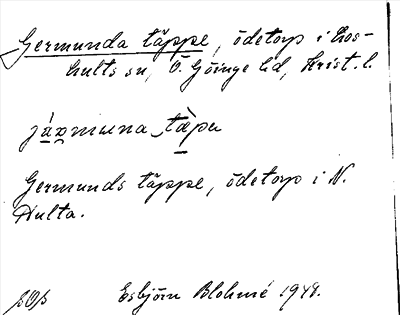 Germunda täppe, ödetorp i Los-
hults sn, Ö. Göinge hd, Krist. l.
järmuna täpu
Germunds täppe, ödetorp i N.
Hulta.
Esbjörn Blohmé 1948.